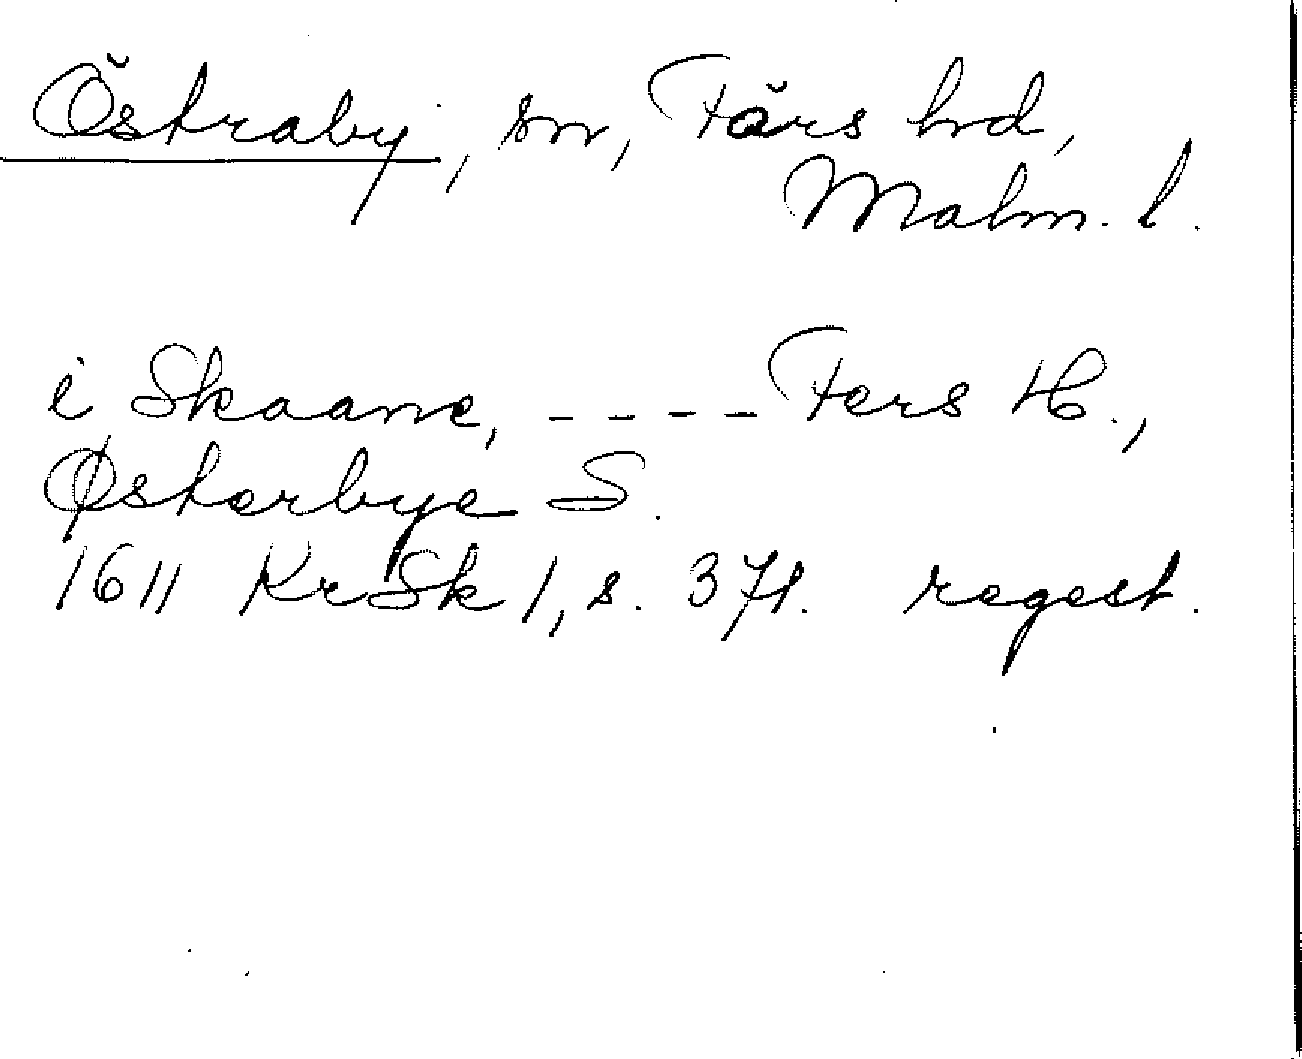 Östraby, sn, Färs hrd,
Malm. l.
i Skaane, ---- Fers H.,
Østerbye S.
1611 KrSk 1, s. 371. regest.